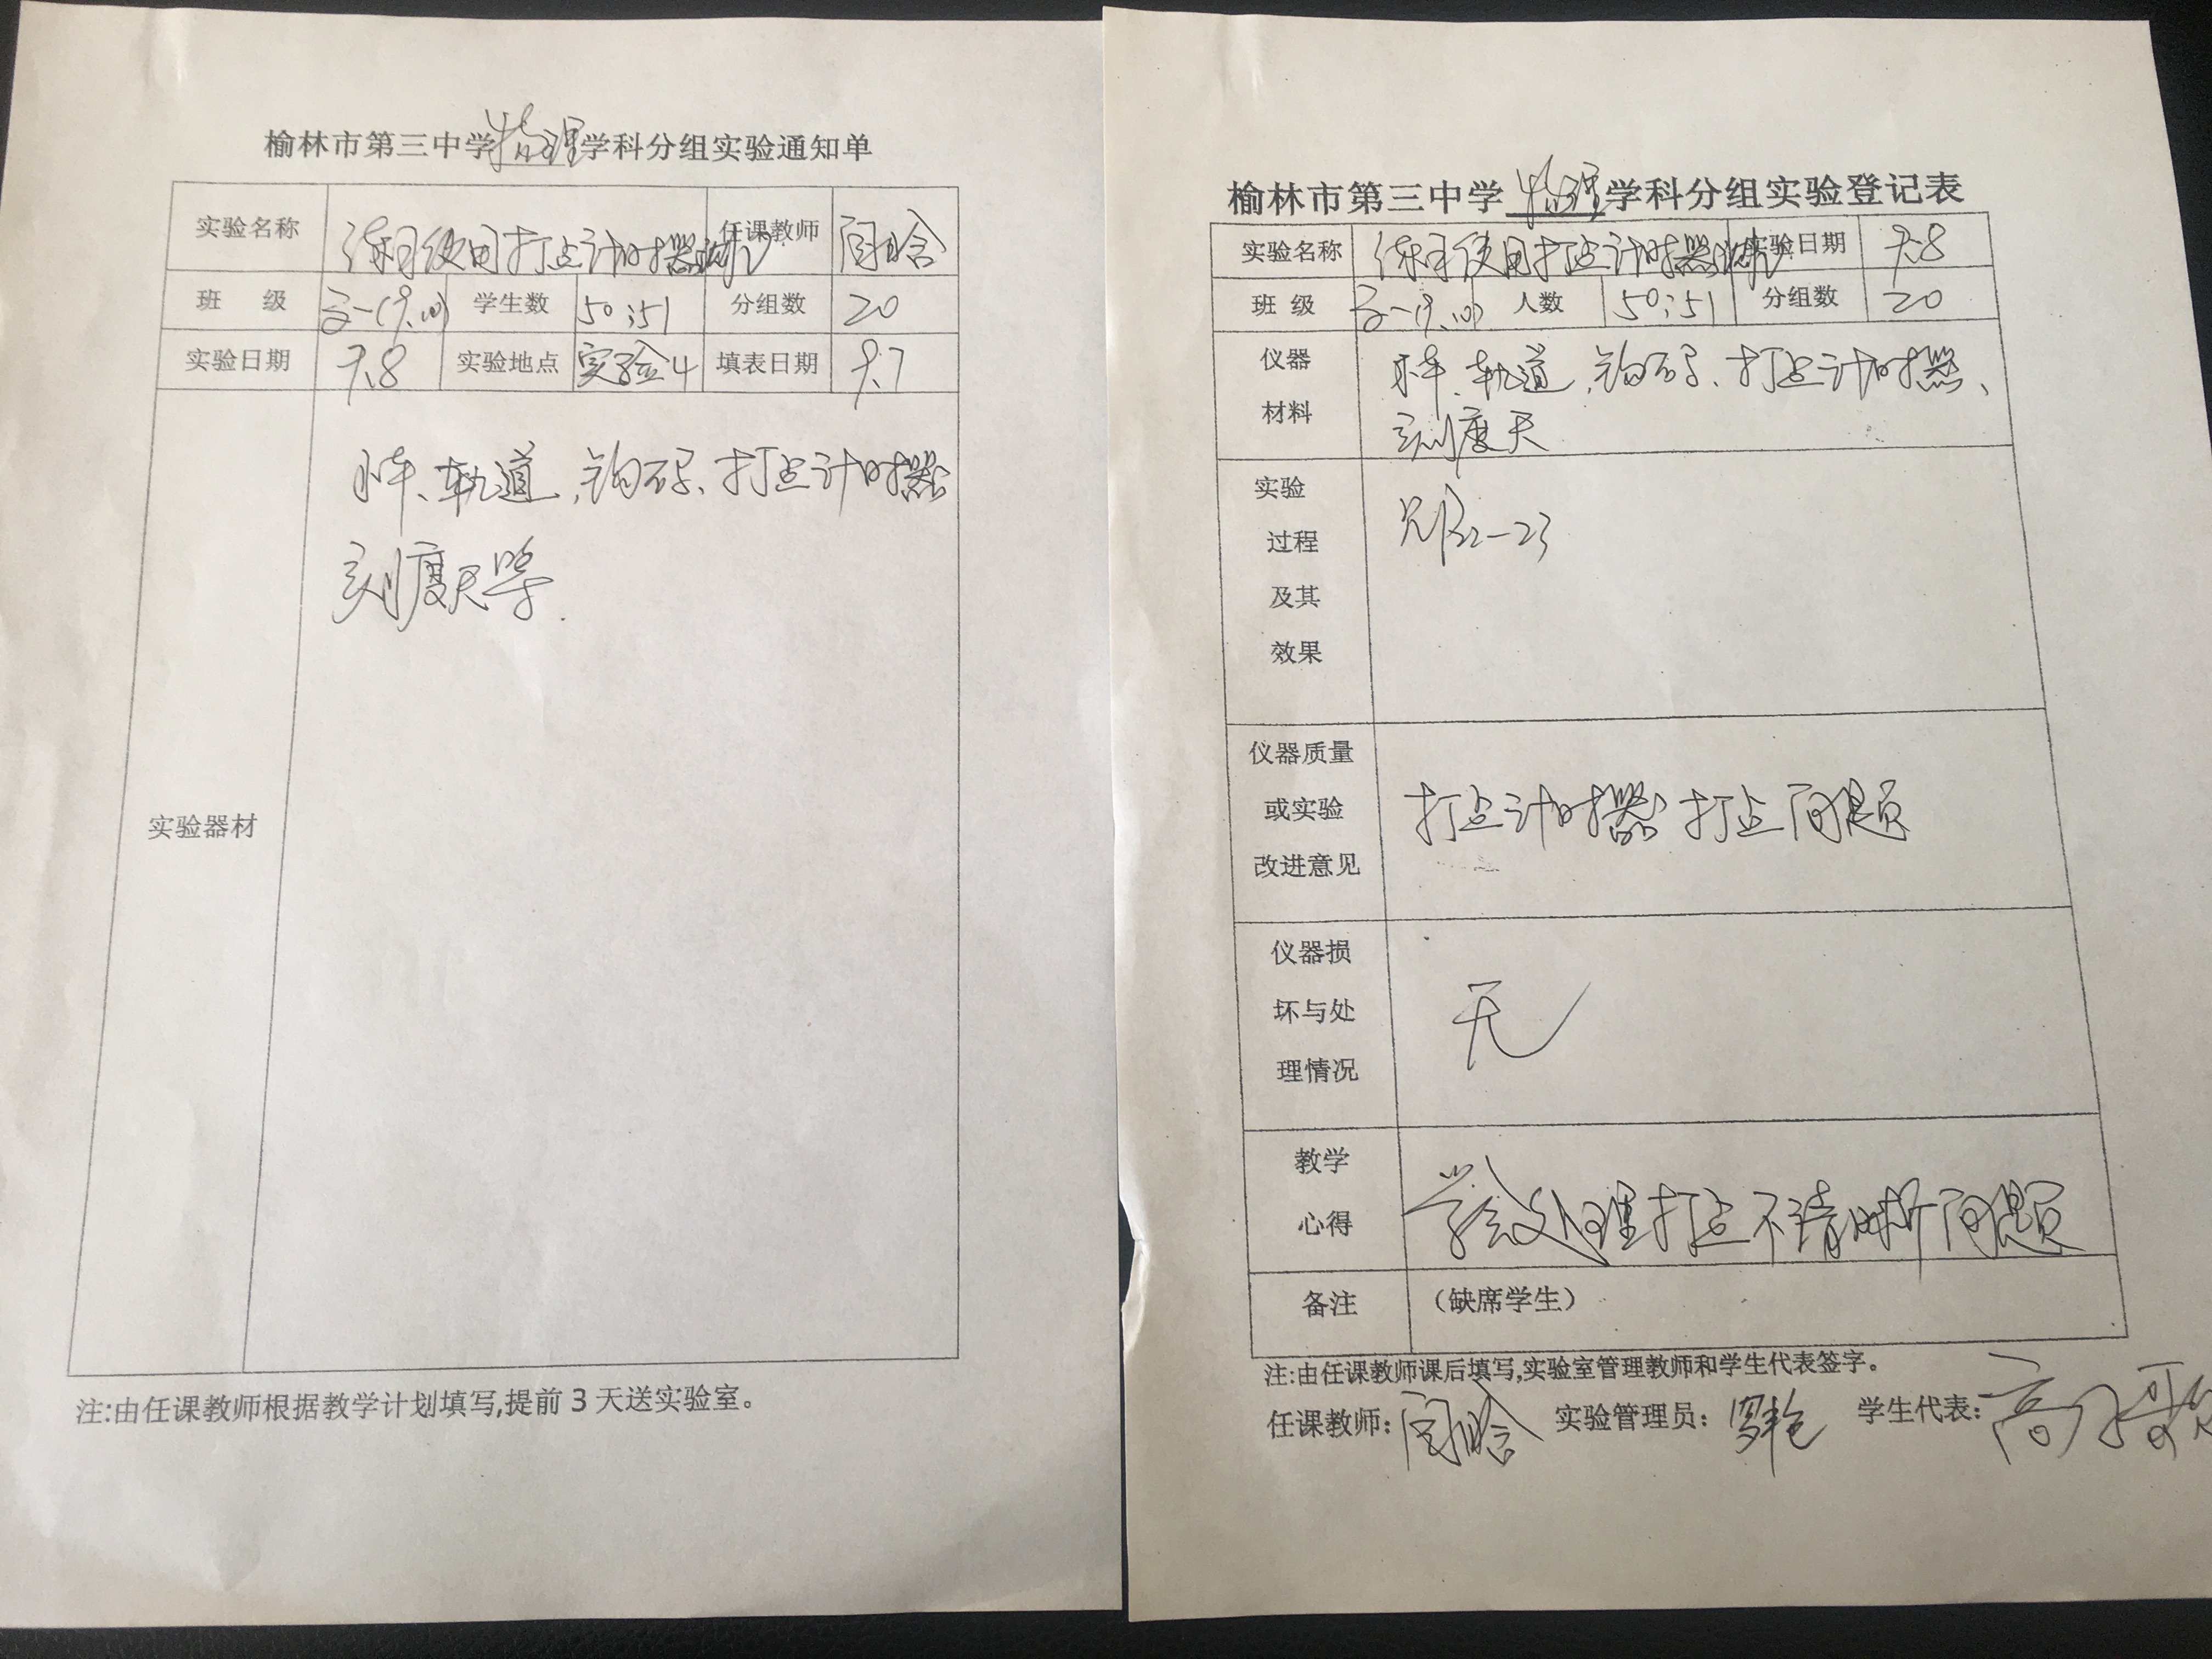 榆林市第三中学物理学科分组实验通知单
实验名称 练习使用打点计时器 任课教师 闫晗
班 级 高一(9.10) 学生数 50;51 分组数 20
实验日期 9.8 实验地点 实验4 填表日期 9.7
实验器材
小车、轨道、钩码、打点计时器
刻度尺等.
注:由任课教师根据教学计划填写,提前3天送实验室。
榆林市第三中学物理学科分组实验登记表
实验名称 练习使用打点计时器 实验日期 9.8
班 级 高一(9.10) 人数 50;51 分组数 20
仪器
材料
小车、轨道、钩码、打点计时器、
刻度尺
实验
过程
及其
效果
见P22-23
仪器质量
或实验
改进意见
打点计时器打点问题
仪器损
坏与处
理情况
无
教学
心得
学会处理打点不清晰问题
备注 (缺席学生)
注:由任课教师课后填写,实验室管理教师和学生代表签字。
任课教师: 闫晗 实验管理员: 学生代表: 高